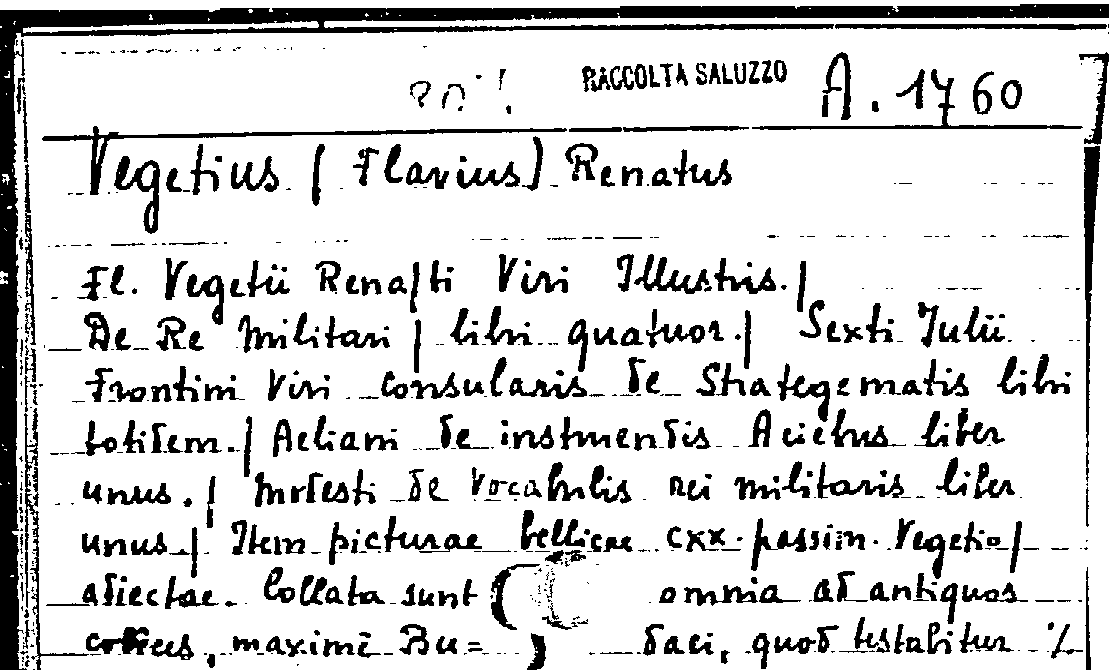 RACCOLTA SALUZZO A. 1760
Vegetius (Flavius) Renatus
Fl. Vegetii Rena|ti Viri Illustris.|
De Re Militari | libri quatuor.| Sexti Julii
Frontini Viri Consularis de Strategematis libri
totidem.| Aeliani de instruendis Aciebus liber
unus. | Modesti de Vocabulis rei militaris liber
unus | Item picturae bellicae cxx. passim. Vegetio |
adiectae. Collata sunt omnia ad antiquos
codices, maximè Bu= daei, quod testabitur %